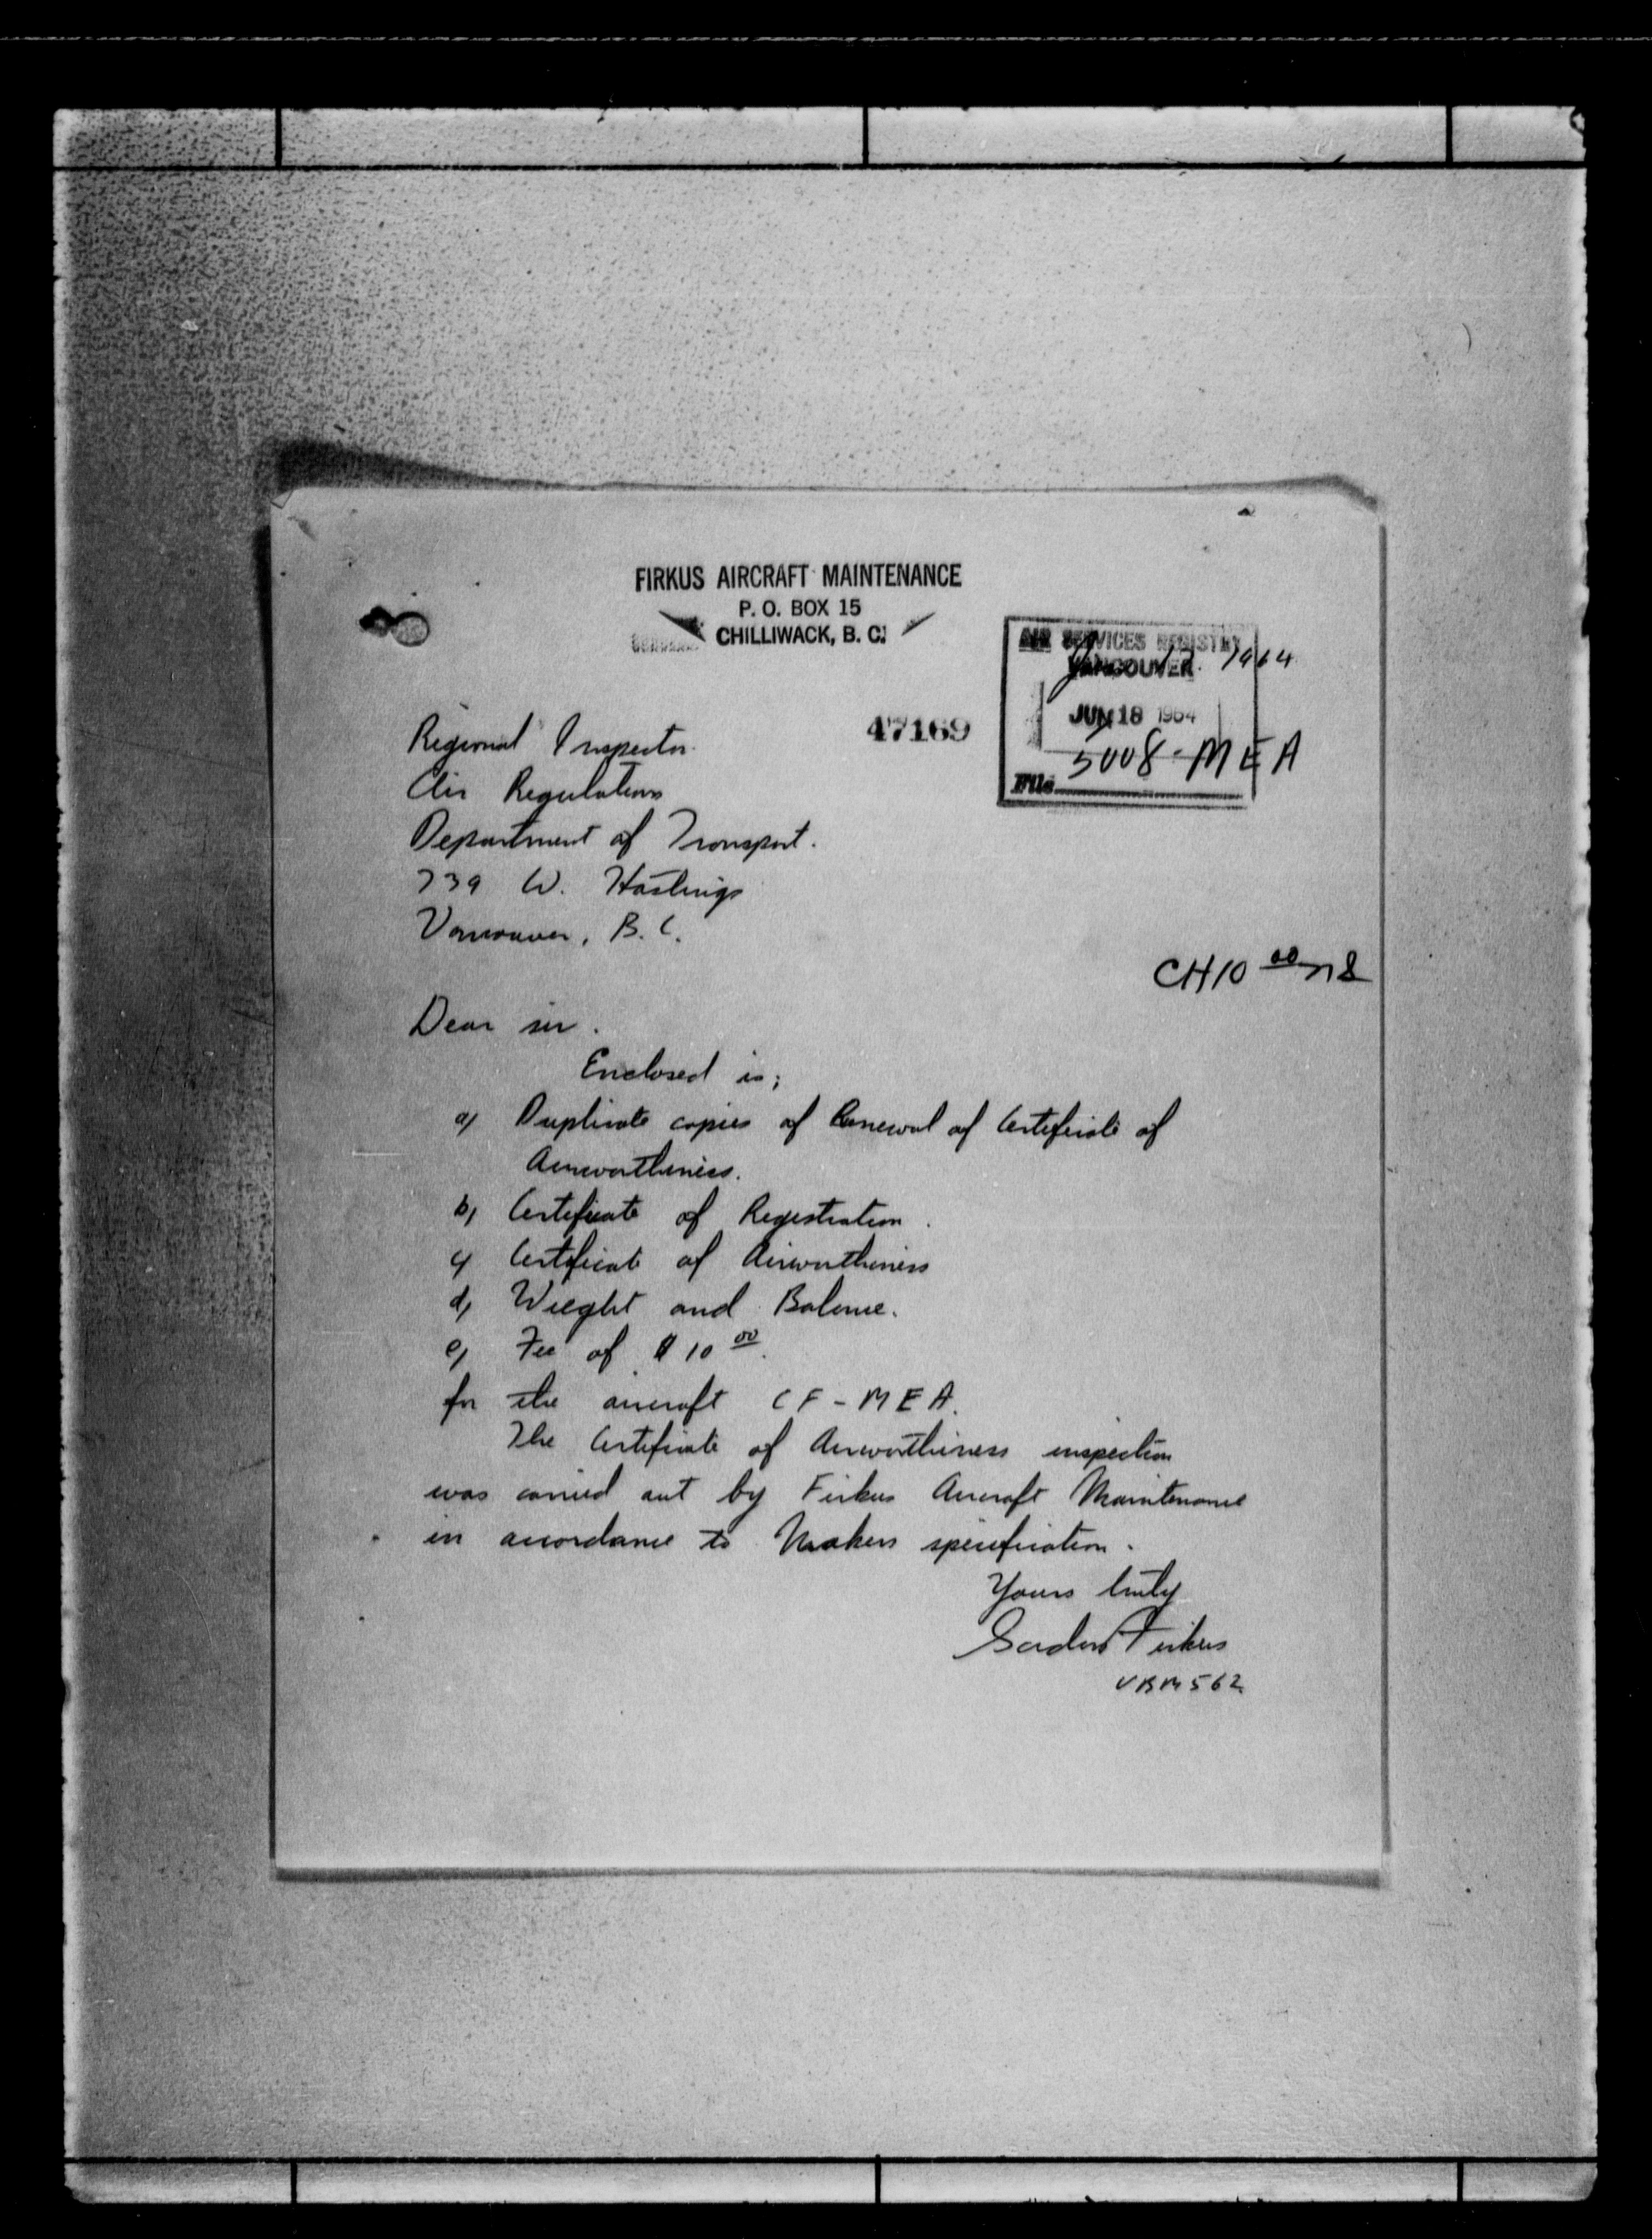 FIRKUS AIRCRAFT MAINTENANCE
P. O. BOX 15
CHILLIWACK, B. C.
AIR SERVICES REGISTRY
VANCOUVER
1964
JUN 18 1964
5008-MEA
File
47169
Regional Inspector.
Air Regulations
Department of Transport.
739 W. Hastings
Vancouver, B. C.
CH10 00
Dear sir.
Enclosed is;
a) Duplicate copies of Renewal of Certificate of
Airworthiness.
b) Certificate of Registration.
c) Certificate of Airworthiness
d) Wieght and Balance.
e) Fee of $ 10 00.
for the aircraft CF-MEA.
The Certificate of Airworthiness inspection
was carried out by Firkus Aircraft Maintenance
in accordance to Makers specification.
Yours truly
Gordon Firkus
VBM562